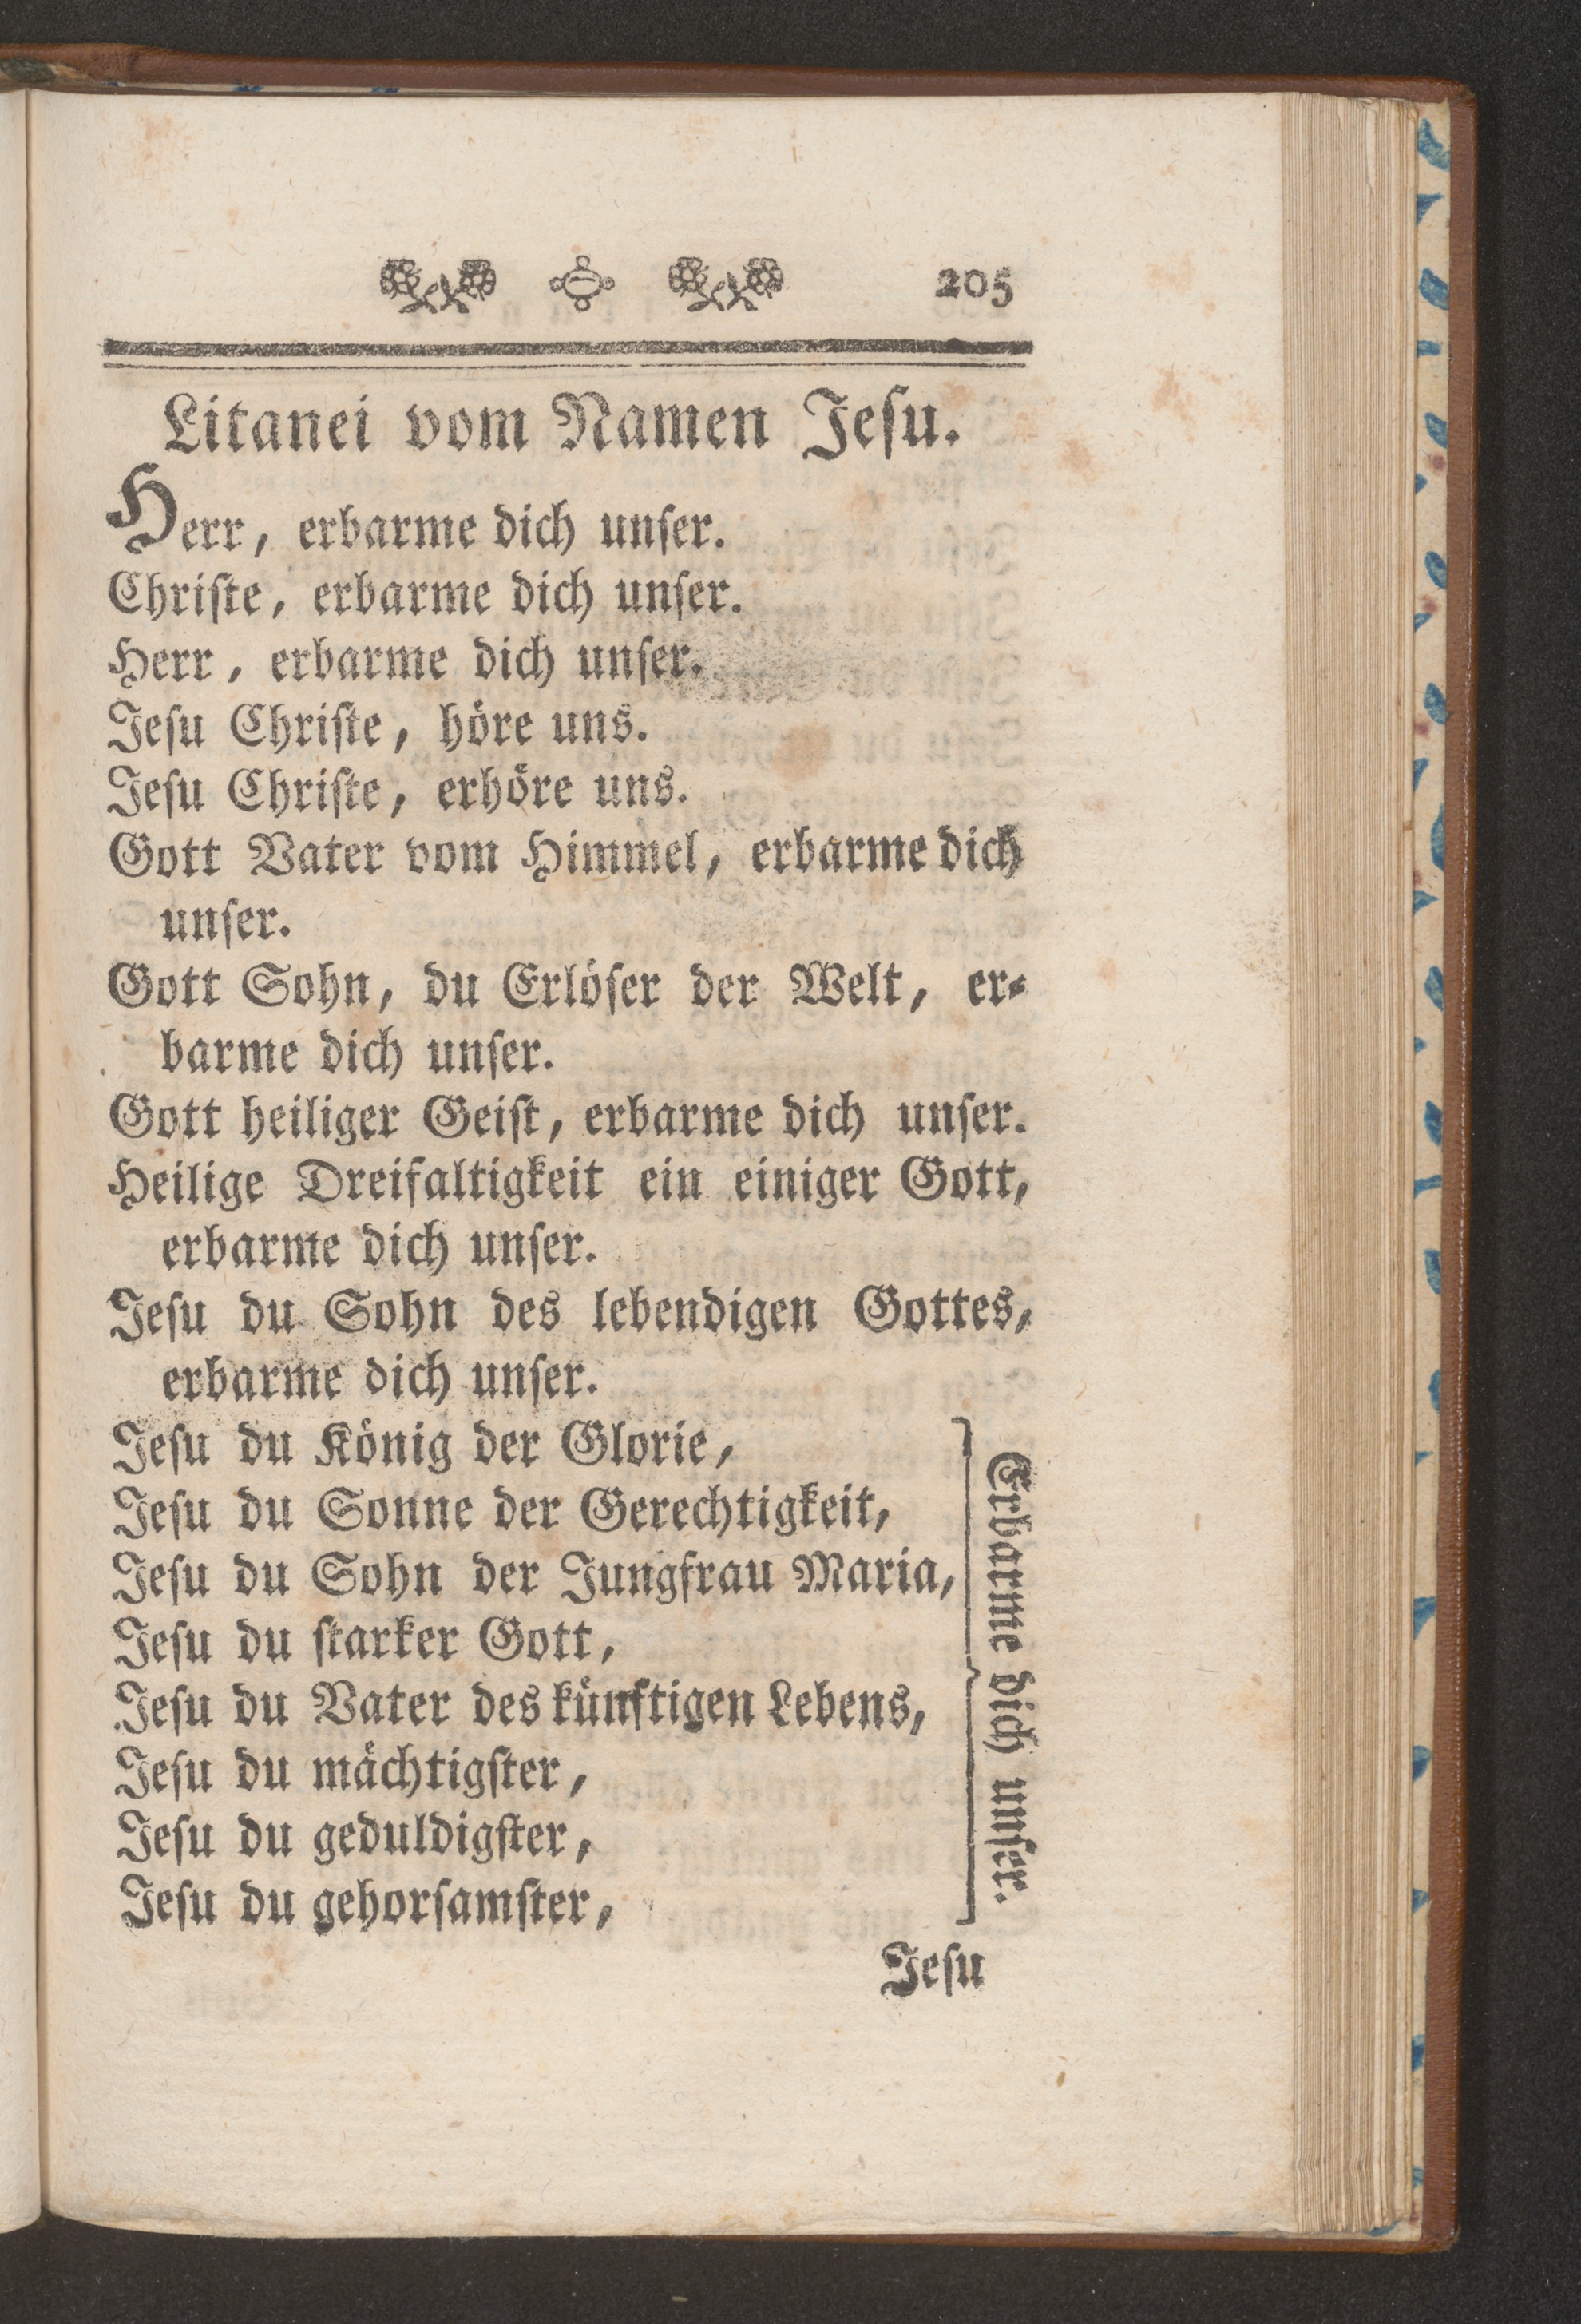 205
Litanei vom Namen Jeſu.
Herr, erbarme dich unſer.
Chriſte, erbarme dich unſer.
Herr, erbarme dich unſer.
Jeſu Chriſte, höre uns.
Jeſu Chriſte, erhöre uns.
Gott Vater vom Himmel, erbarme dich
unſer.
Gott Sohn, du Erlöſer der Welt, er⸗
barme dich unſer.
Gott heiliger Geiſt, erbarme dich unſer.
Heilige Dreifaltigkeit ein einiger Gott,
erbarme dich unſer.
Jeſu du Sohn des lebendigen Gottes,
erbarme dich unſer.
Jeſu du König der Glorie,
Jeſu du Sonne der Gerechtigkeit,
Jeſu du Sohn der Jungfrau Maria,
Jeſu du ſtarker Gott,
Jeſu du Vater des künftigen Lebens,
Jeſu du mächtigſter,
Jeſu du geduldigſter,
Jeſu du gehorſamſter,
Erbarme dich unſer.
Jeſu